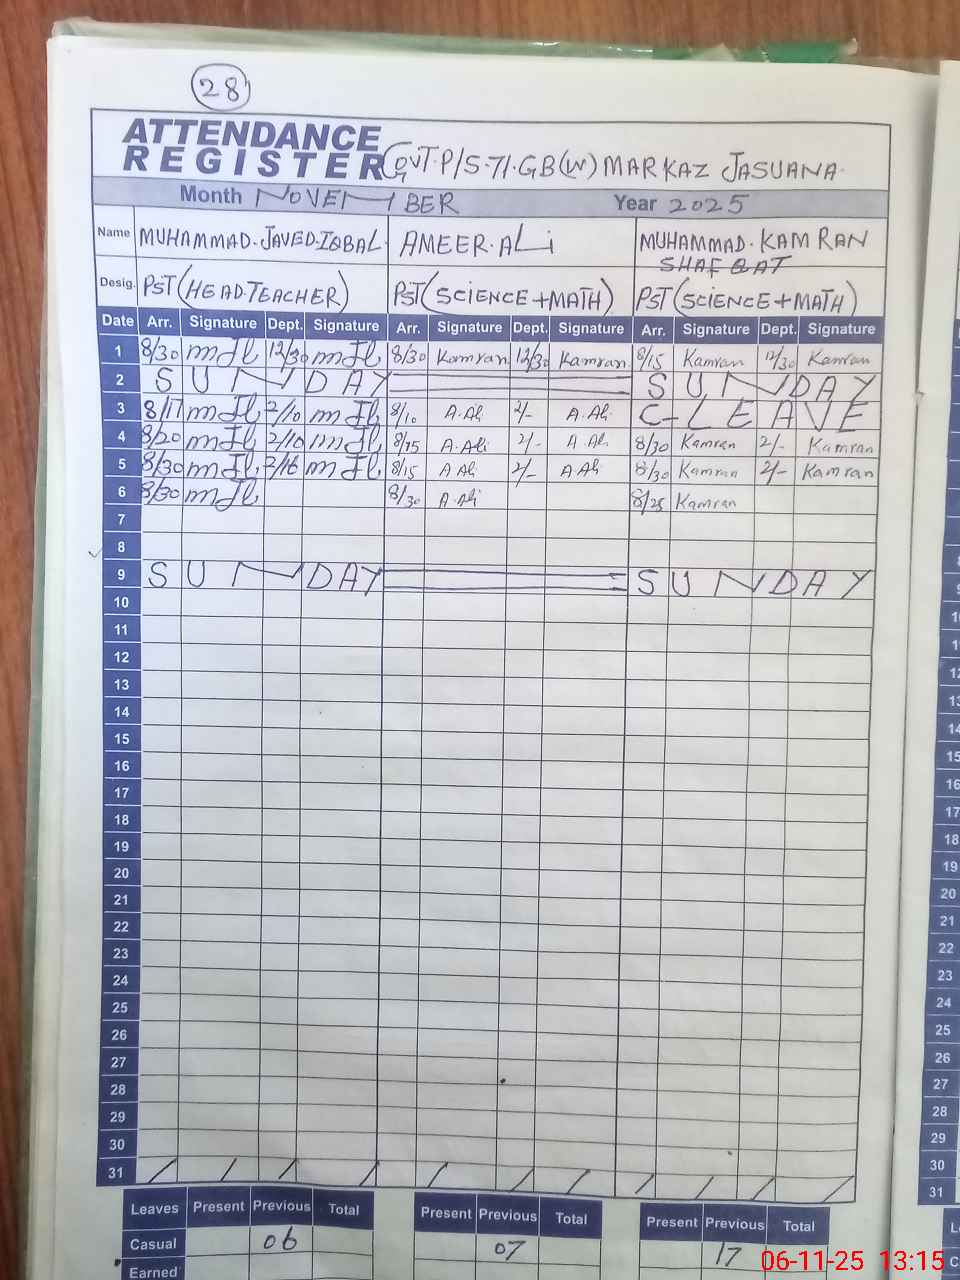 28
ATTENDANCE
REGISTER GOVT. P/S. 71. GB(W) MARKAZ JASUANA.
Month NOVEMBER Year 2025
Name MUHAMMAD. JAVED. IQBAL. AMEER. ALi MUHAMMAD. KAMRAN
SHAFQAT
Desig. PST (HEAD. TEACHER) PST (SCIENCE + MATH) PST (SCIENCE + MATH)
Date Arr. Signature Dept. Signature Arr. Signature Dept. Signature Arr. Signature Dept. Signature
1 8/30 12/30 8/30 Kamran 12/30 Kamran 8/15 Kamran 12/30 Kamran
2 SUNDAY SUNDAY
3 8/17 2/10 8/10 A.Ali 2/- A.Ali C-LEAVE
4 8/20 2/10 8/15 A.Ali 2/- A.Ali 8/30 Kamran 2/- Kamran
5 8/30 2/16 8/15 A Ali 2/- A Ali 8/30 Kamran 2/- Kamran
6 8/30 8/30 A.Ali 8/25 Kamran
7
8
9 SUNDAY SUNDAY
10
11
12
13
14
15
16
17
18
19
20
21
22
23
24
25
26
27
28
29
30
31
Leaves Present Previous Total Present Previous Total Present Previous Total
Casual 06 07 17
Earned
06-11-25 13:15